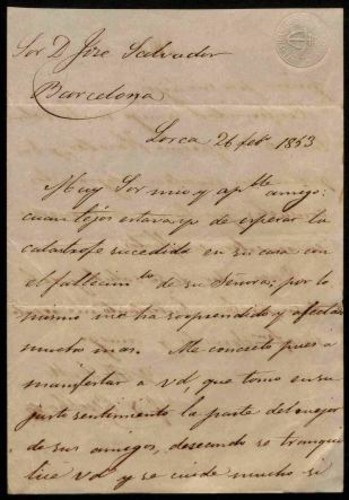 Sor D Jose Salvador
Barcelona
Lorca 26 feb.º 1853
Muy Sor mio y apble amigo:
cuan lejos estava yo de esperar la
catastrofe sucedida en su casa con
el fallecimto de su Señora; por lo
mismo me ha sorprendido y afectado
mucho mas. Me concreto pues a
manifestar a Vd, que tomo en su
justo sentimiento la parte del mejor
de sus amigos, deseando se tranqui
lice Vd y se cuide mucho si